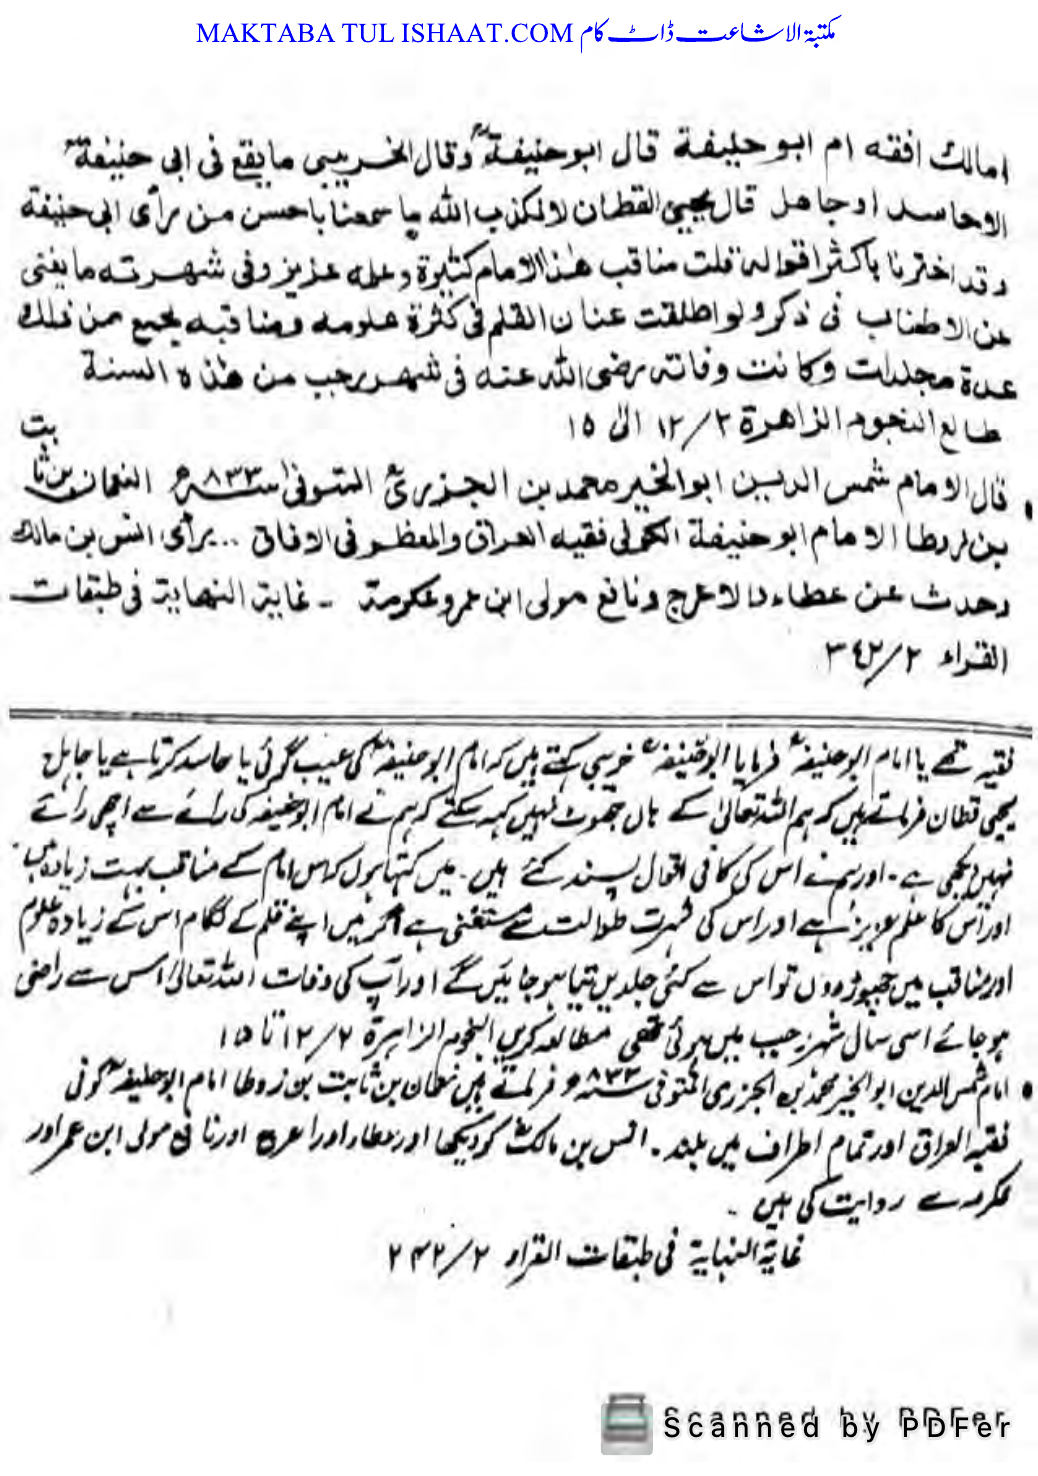 MAKTABA TUL ISHAAT.COM مکتبۃ الاشاعت ڈاٹ کام
امالك افقه ام ابو حنيفة قال ابو حنيفةؒ وقال الخريبی ما يقع فی ابی حنيفةؒ
الاحاسد او جاهل قال يحيیٰ القطان لا نكذب الله ما سمعنا باحسن من رأی ابی حنيفة
وقد اخترنا باكثر اقواله قلت مناقب هذا الامام كثيرة وعلمه عزيز وفی شهرته ما يغنی
عن الاطناب فی ذكره ولو اطلقت عنان القلم فی كثرة علومه ومناقبه لجمع من ذلك
عدة مجلدات وكانت وفاته رضی الله عنه فی شهر رجب من هذه السنة
طالع النجوم الزاهرة ۲/۱۲ الیٰ ۱۵
قال الامام شمس الدين ابو الخير محمد بن الجزریؒ المتوفیٰ سنه ۸۳۳ھ النعمان بن ثابت
بن زوطا الامام ابو حنيفة الكوفی فقيه العراق والمعظم فی الافاق .. رأی انس بن مالك
وحدث عن عطاء والاعرج ونافع مولی ابن عمر وعكرمة ۔ غاية النهاية فی طبقات
القراء ۲/۳٤۲
فقیہ تھے یا امام ابوحنیفہؒ فرمایا ابوحنیفہؒ خریبی کہتے ہیں کہ امام ابوحنیفہؒ کی عیب گوئی یا حاسد کرتا ہے یا جاہل
یحییٰ قطان فرماتے ہیں کہ ہم اللہ تعالیٰ کے ہاں جھوٹ نہیں کہہ سکتے کہ ہم نے امام ابوحنیفہ کی رائے سے اچھی رائے
نہیں دیکھی ہے۔ اور ہم نے اس کی کافی اقوال پسند کئے ہیں۔ میں کہتا ہوں کہ اس امام کے مناقب بہت زیادہ ہیں
اور اس کا علم عزیز ہے اور اس کی شہرت طوالت سے مستغنی ہے اگر میں اپنے قلم کے لگام اس کے زیادہ علوم
اور مناقب میں چھوڑ دوں تو اس سے کئی جلدیں تیار ہو جائیں گے اور آپ کی وفات اللہ تعالیٰ اس سے راضی
ہو جائے اسی سال شہر رجب میں ہوئی تھی مطالعہ کریں النجوم الزاہرۃ ۲/۱۲ تا ۱۵
امام شمس الدین ابو الخیر محمد بن الجزری المتوفی سنہ ۸۳۳ھ فرماتے ہیں نعمان بن ثابت بن زوطا امام ابوحنیفہؒ کوفی
فقیہ العراق اور تمام اطراف میں بلند۔ انس بن مالکؓ کو دیکھا اور عطاء اور اعرج اور نافع مولی ابن عمر اور
عکرمہ سے روایت کی ہیں۔
غایۃ النہایۃ فی طبقات القراء ۲/۳۴۲
Scanned by PDFer